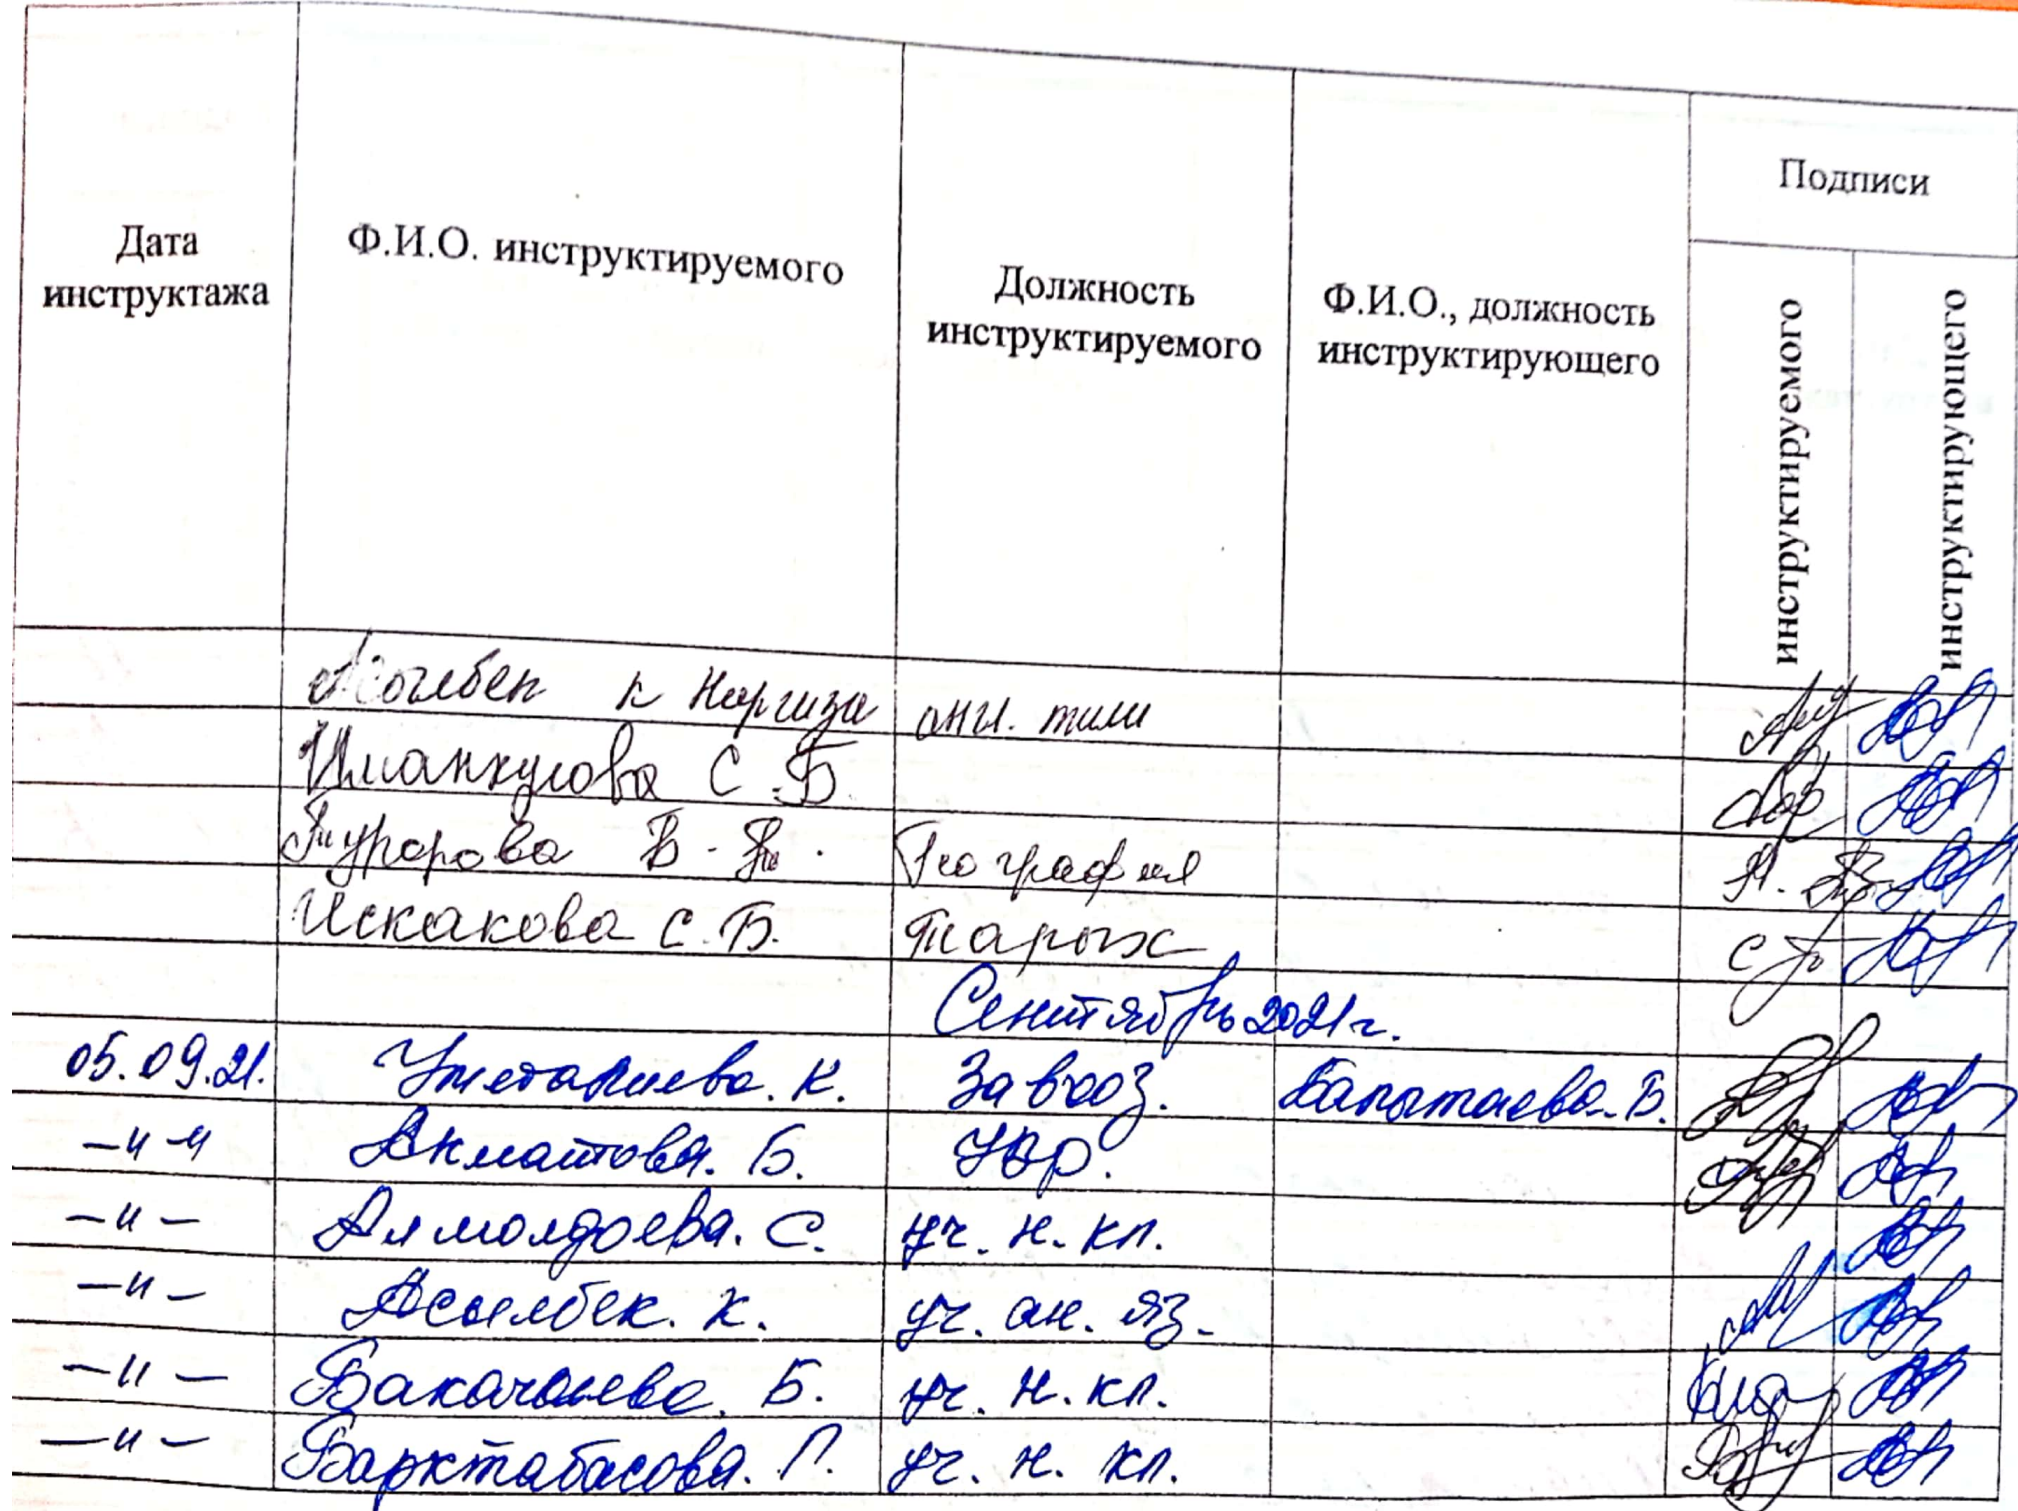 Дата инструктажа
Ф.И.О. инструктируемого
Должность инструктируемого
Ф.И.О., должность инструктирующего
Подписи
инструктируемого
инструктирующего
к Наргиза англ. тили
Иманкулова С.Б
В.
География
Искакова С.Б. Тарых
Сентябрь 2021г.
05.09.21. К. Завхоз. Б.
-"- Акматова. Б.
-"- Алмолдоева. С. уч. н. кл.
-"- Асылбек. к. уч. ан. яз.
-"- Б. уч. н. кл.
-"- Барктабасова. Г. уч. н. кл.